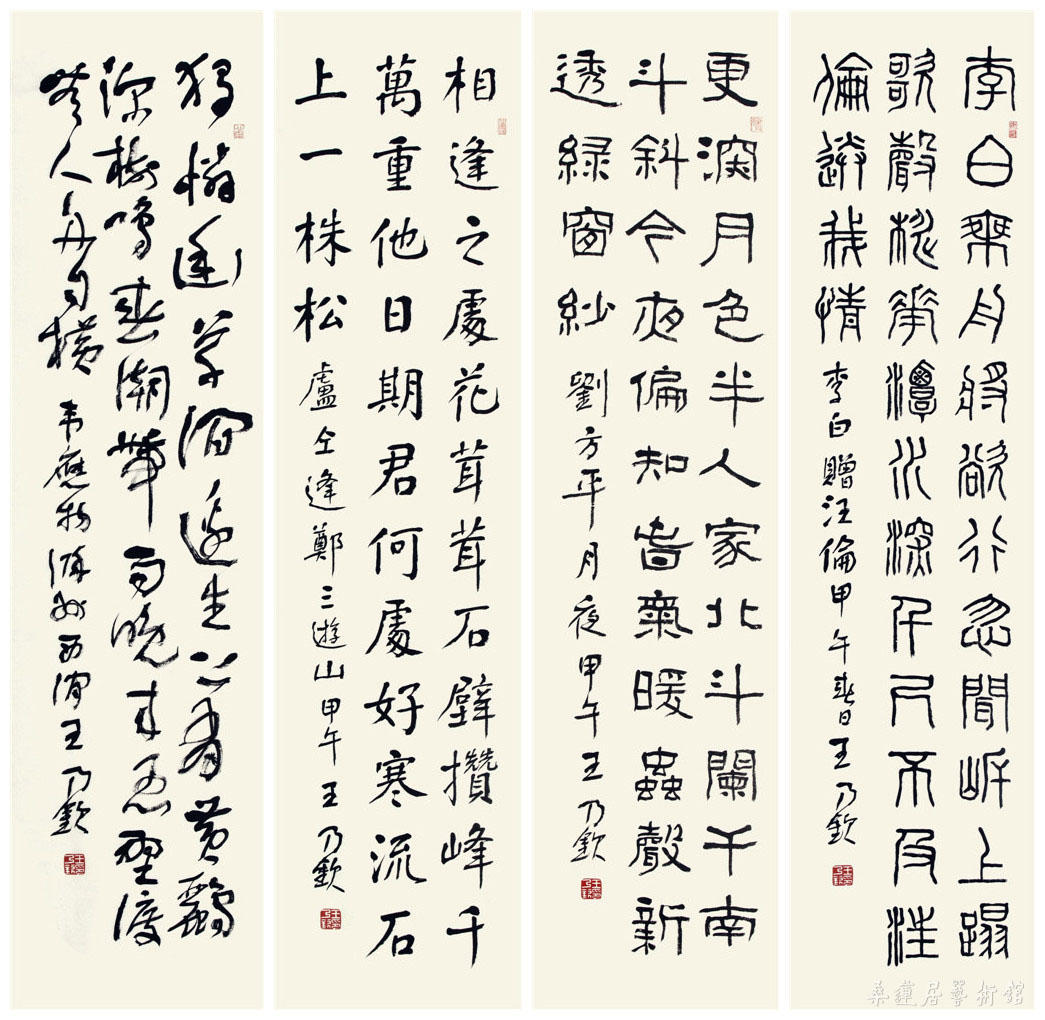 李白乘舟將欲行忽聞岸上蹋
歌聲桃花潭水深千尺不及汪
倫送我情 李白贈汪倫甲午春日王乃欽
更深月色半人家北斗闌干南
斗斜今夜偏知春氣暖蟲聲新
透綠窗紗 劉方平月夜甲午王乃欽
相逢之處花茸茸石壁攢峰千
萬重他日期君何處好寒流石
上一株松 盧仝逢鄭三遊山甲午王乃欽
獨憐幽草澗邊生上有黃鸝
深樹鳴春潮帶雨晚來急野渡
無人舟自橫 韋應物滁州西澗王乃欽
桑蓮居藝術館